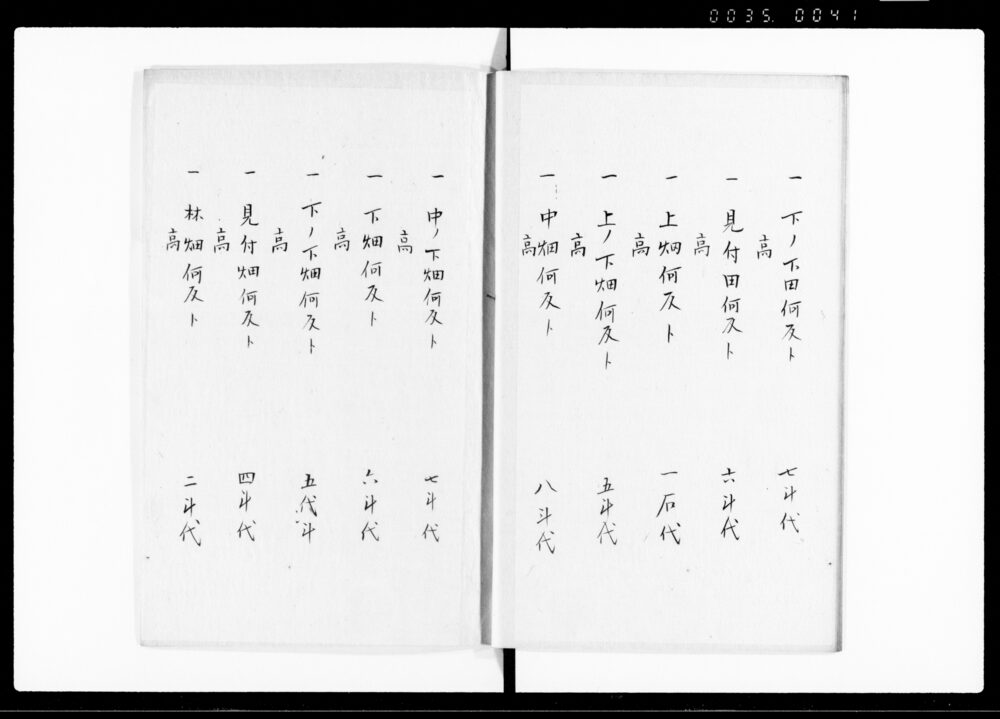 0035.0041
一 下ノ下田何反ト 七斗代
高
一 見付田何反ト 六斗代
高
一 上畑何反ト 一石代
高
一 上ノ下畑何反ト 五斗代
高
一 中畑何反ト 八斗代
高
一 中ノ下畑何反ト 七斗代
高
一 下畑何反ト 六斗代
高
一 下ノ下畑何反ト 五代斗
高
一 見付畑何反ト 四斗代
高
一 林畑何反ト 二斗代
高